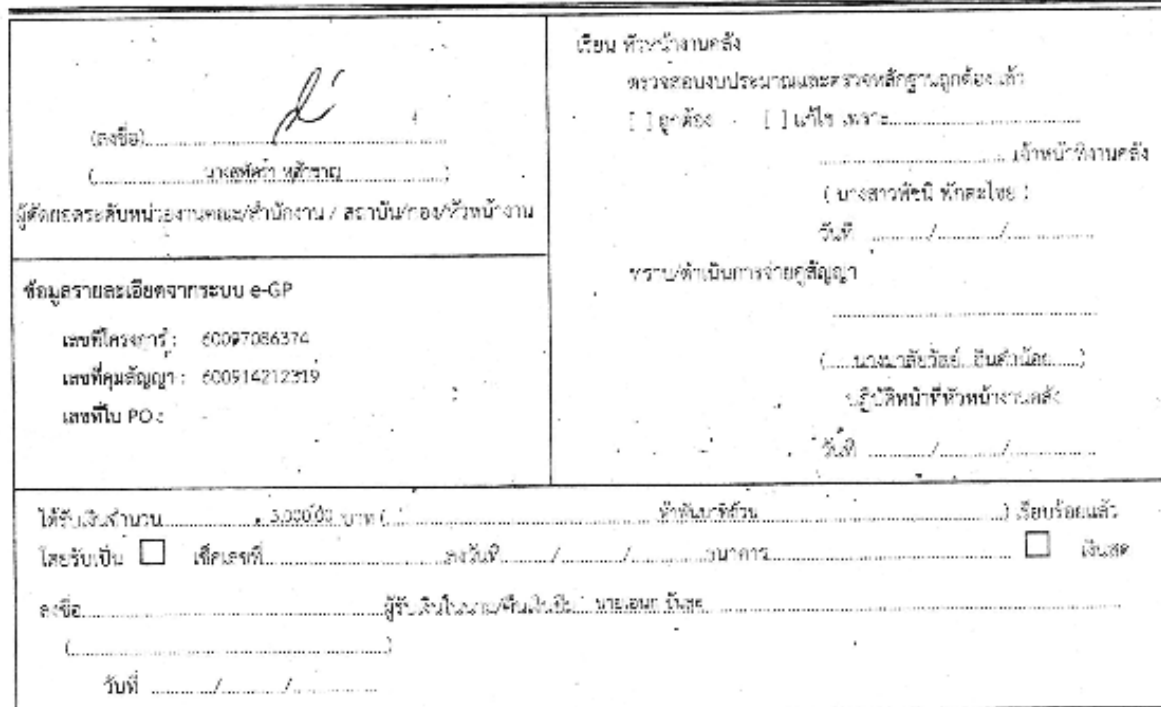 (ลงชื่อ)
ผู้ตัดยอดระดับหน่วยงานคณะ/สำนักงาน / สถาบัน/กอง/หัวหน้างาน
ข้อมูลรายละเอียดจากระบบ e-GP
เลขที่โครงการ : 60097086374
เลขที่คุมสัญญา : 600914212319
เลขที่ใบ PO : -
เรียน หัวหน้างานคลัง
ตรวจสอบงบประมาณและตรวจหลักฐานถูกต้องแล้ว
[ ] ถูกต้อง [ ] แก้ไข เพราะ
เจ้าหน้าที่งานคลัง
( นางสาวพัชนี )
วันที่ ........../........../..........
ทราบ/ดำเนินการจ่ายคู่สัญญา
ปฏิบัติหน้าที่หัวหน้างานคลัง
วันที่ ........../........../..........
ได้รับเงินจำนวน 5,000.00 บาท ( ห้าพันบาทถ้วน ) เรียบร้อยแล้ว
โดยรับเป็น เช็คเลขที่ ลงวันที่ ........../........../.......... ธนาคาร เงินสด
ลงชื่อ ผู้รับเงินในนาม/คืนเงินยืม นายเอนก
วันที่ ........../........../..........